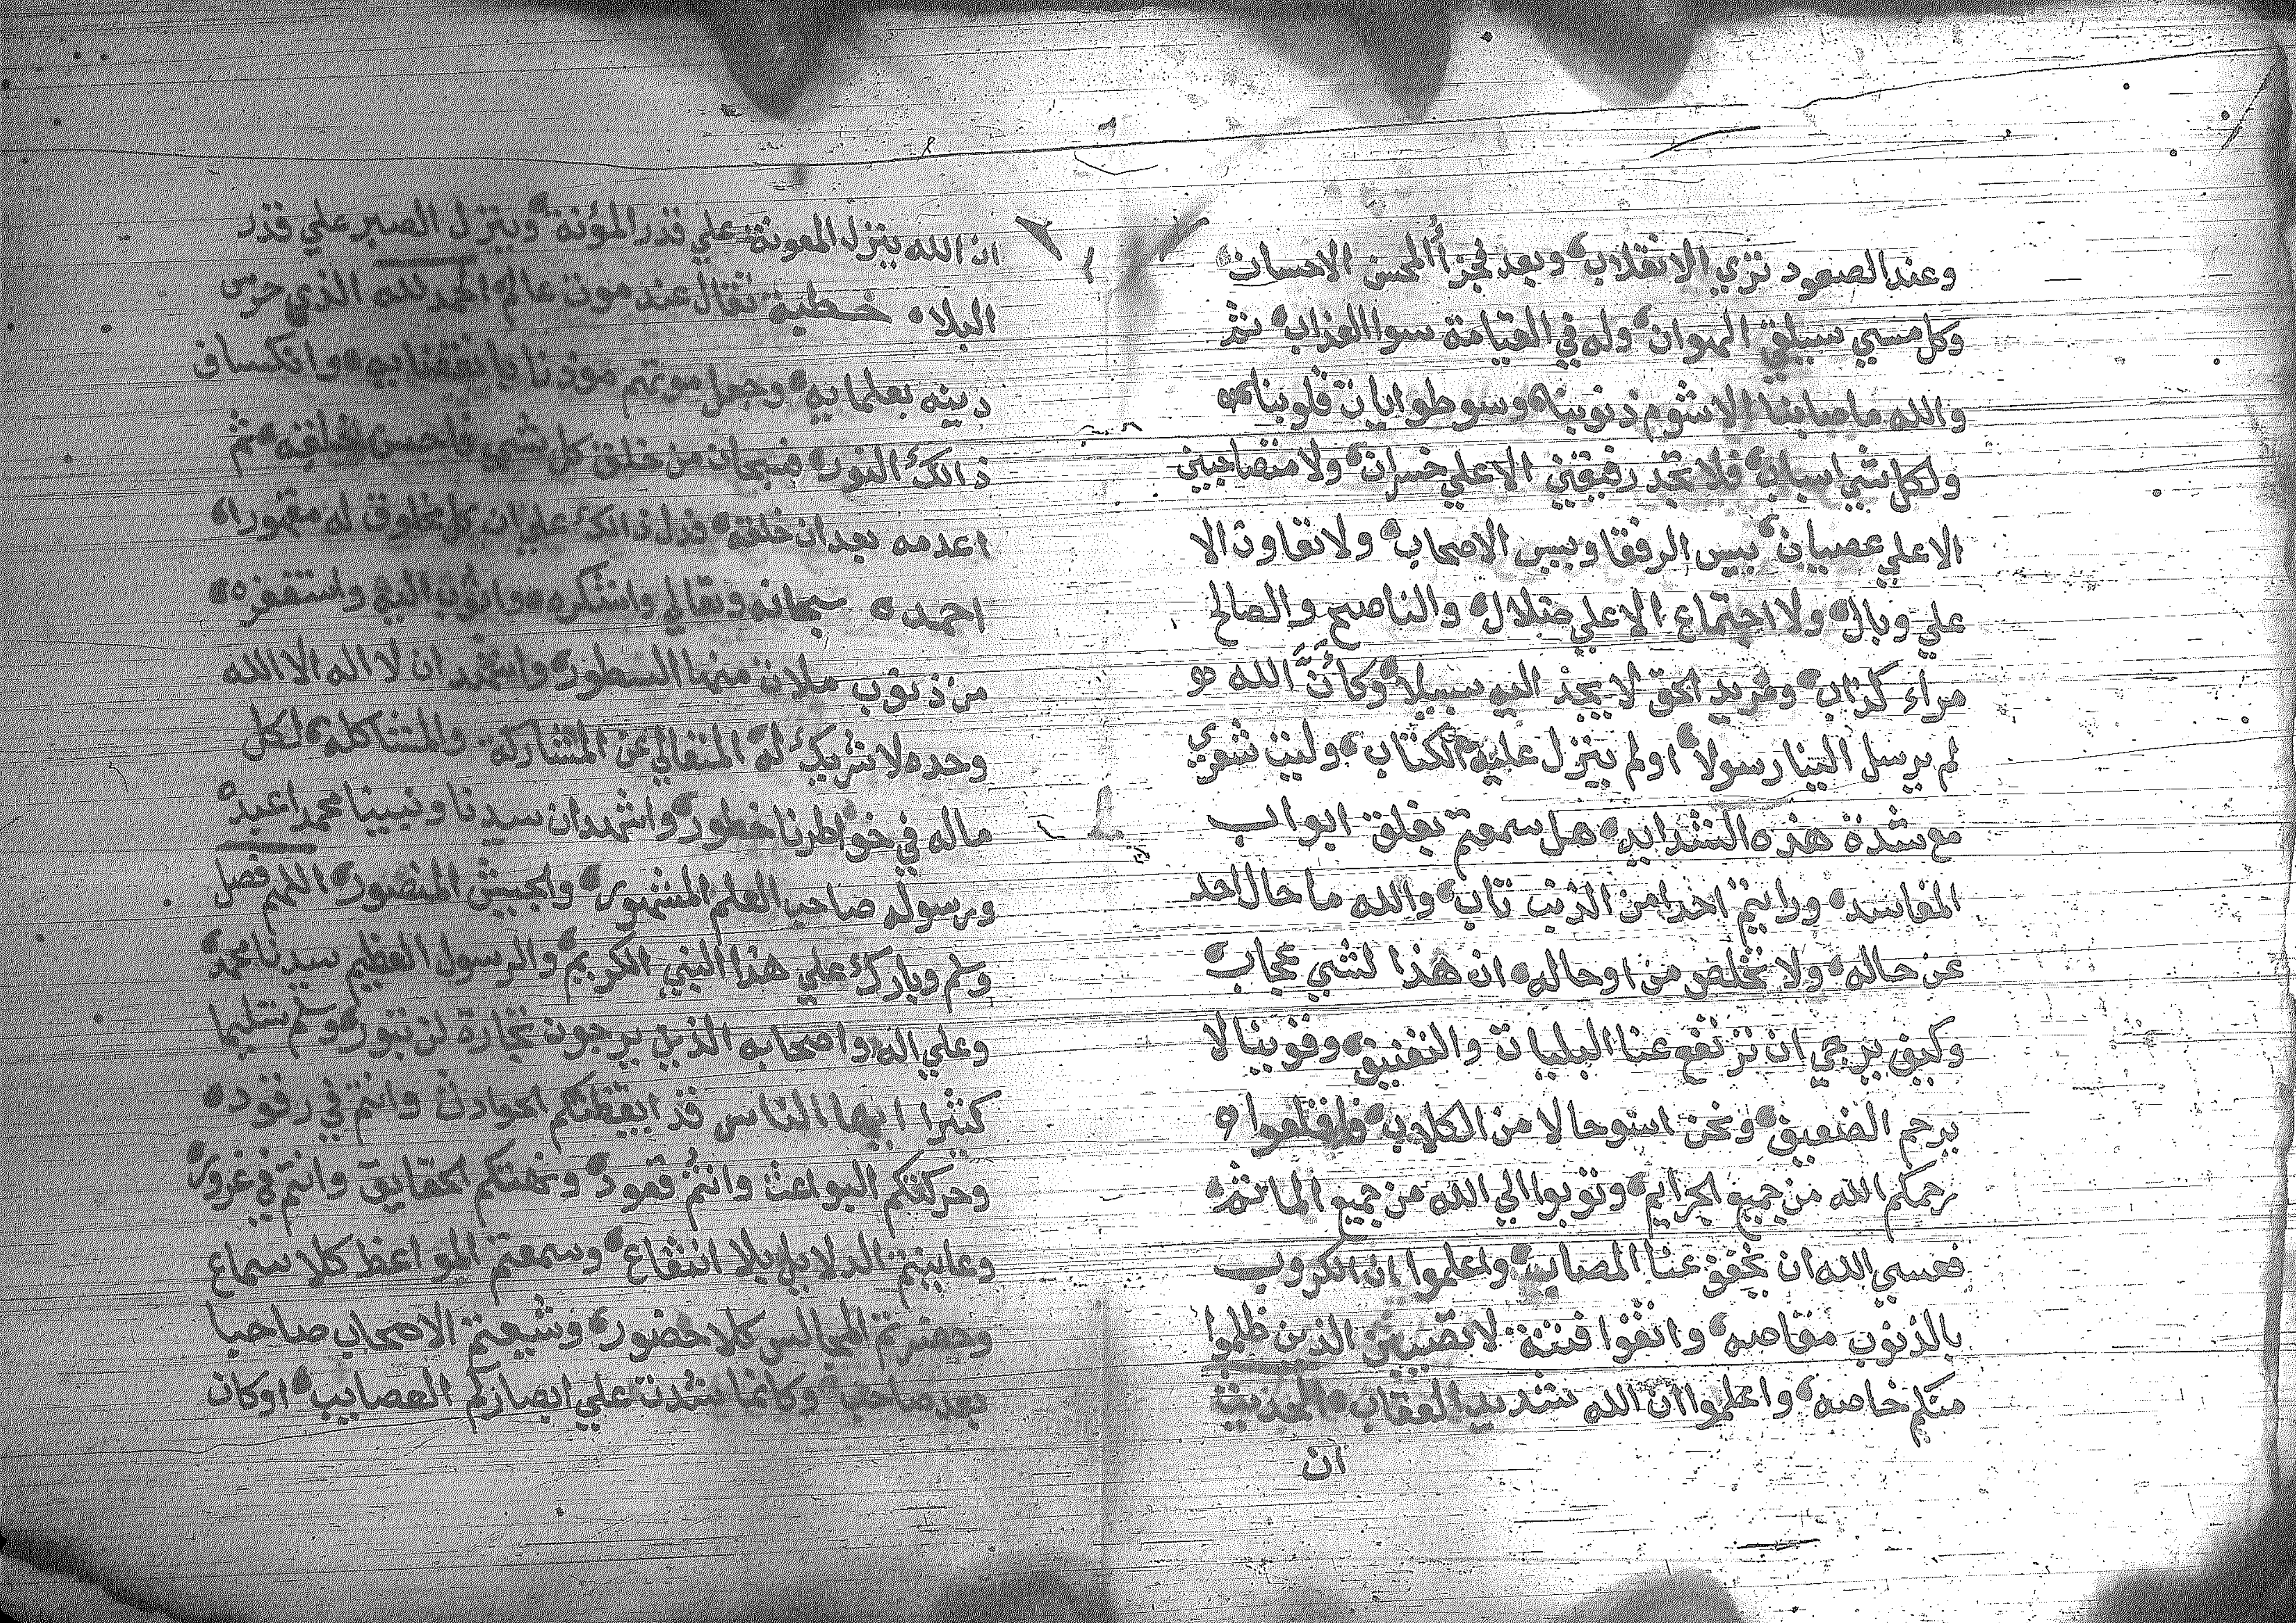 وعند الصعود تري الانقلاب وبعد فجزأ المحسن الاحسان
وكل مسيي سيلقي الهوان وله في القيامة سوا العذاب تم
والله ماصابنا الا شوم ذنوبنا وسو طوايات قلوبنا
ولكل شي اسباب فلا تجد رفيقني الا علي خسران ولا متصاحبين
الا علي عصيان بيس الرفقا وبيس الاصحاب ولا تعاون الا
علي وبال ولا اجتماع الا علي ضلال والناصح والصالح
مراء كذاب ومريد الحق لا يجد اليه سبيلا وكأنَّ الله
لم يرسل الينا رسولا اولم ينزل عليه الكتاب وليت شعري
مع شدة هذه الشدايد هل سمعتم بغلق ابواب
المفاسد ورايتم احدا من الذنب تاب والله ما حال احد
عن حاله ولا تخلص من اوحاله ان هذا لشي عجاب
وكيف يرجي ان ترتفع عنا البليات والتعنيف وقوينا لا
يرحم الضعيف ونحن اسو حالا من الكلاب فاقلعوا
رحمكم الله من جميع الجرايم وتوبوا الي الله من جميع الماثم
فعسي الله ان يخفف عنا المصايب واعلموا ان الكروب
بالذنوب مقاصه واتقوا فتنة لا تصيبن الذين ظلموا
منكم خاصه واعلموا ان الله شديد العقاب الحديث
ان
ان الله ينزل المعونة علي قدر المؤنة وينزل الصبر علي قدر
البلاء خطبة تقال عند موت عالم الحمد لله الذي حرس
دينه بعلمايه وجعل موتهم موذنا بانقضايه وانكساف
ذالك النور فسبحان من خلق كل شي فاحسن خلقه ثم
اعدمه بعد ان خلقه فدل ذالك علي ان كل مخلوق له مقهورا
احمده سبحانه وتعالي واشكره واتوب اليه واستغفره
من ذنوب ملات منها السطور واشهد ان لا اله الا الله
وحده لا شريك له المتعالي عن المشاركة والمشاكله لكل
ماله في خواطرنا خطور واشهد ان سيدنا ونبينا محمدا عبده
ورسوله صاحب العلم المشهور والجيش المنصور اللهم فصل
وسلم وبارك علي هذا النبي الكريم والرسول العظيم سيدنا محمد
وعلي اله واصحابه الذين يرجون تجارة لن تبور وسلم تسليما
كثيرا ايها الناس قد ايقظتكم الحوادث وانتم في رقود
وحركتكم البواعث وانتم قعود ونهتكم الحقايق وانتم في غرور
وعاينتم الدلايل بلا انتفاع وسمعتم المواعظ كلا سماع
وحضرتم المجالس كلا حضور وشيعتم الاصحاب صاحبا
بعد صاحب وكانما شدت علي ابصاركم العصايب اوكان